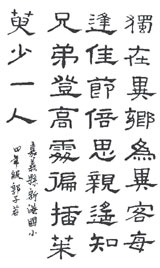 獨在異鄉為異客每
逢佳節倍思親遙知
兄弟登高處徧插茱
萸少一人
嘉義縣新港國小
四年級郭子